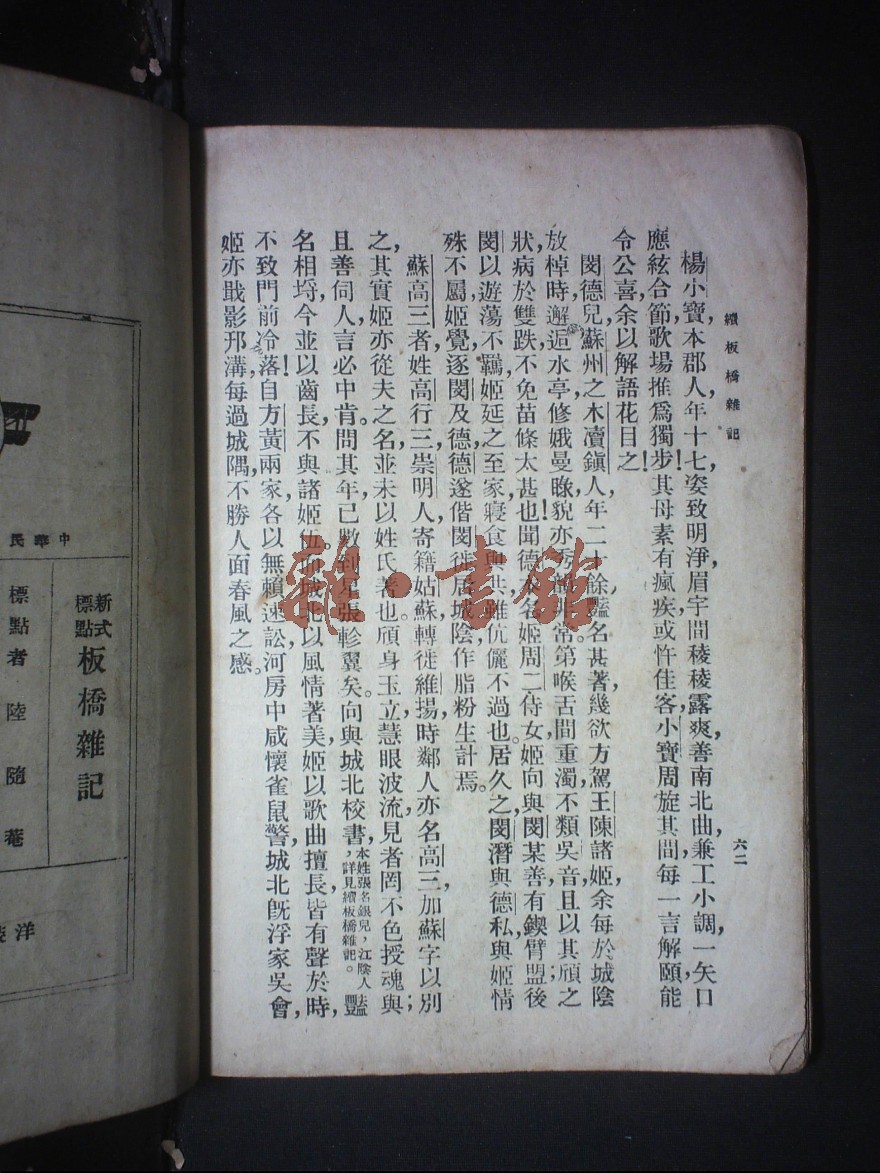 續板橋雜記
六二
楊小寶,本郡人,年十七,姿致明淨,眉宇間稜稜露爽,善南北曲,兼工小調,一矢口,
應絃合節,歌場推爲獨步!其母素有瘋疾,或忤佳客,小寶周旋其間,每一言解頤,能
令公喜,余以解語花目之!
閔德兒,蘇州之木瀆鎭人,年二十餘,豔名甚著,幾欲方駕王陳諸姬,余每於城陰
放棹時,邂逅水亭,修娥曼睩,貌亦秀 非常。第喉舌間重濁,不類吳音,且以其頎之
狀,病於雙趺,不免苗條太甚也!聞德 名姬周二侍女,姬向與閔某善,有鍥臂盟;後
閔以遊蕩不羈,姬延之至家,寢食與共,雖伉儷不過也。居久之,閔潛與德私,與姬情
殊不屬,姬覺,逐閔及德,德遂偕閔徙居城陰,作脂粉生計焉。
蘇高三者,姓高,行三,崇明人,寄籍姑蘇,轉徙維揚,時鄰人亦名高三,加蘇字以別
之,其實姬亦從夫之名,並未以姓氏著也。頎身玉立,慧眼波流,見者罔不色授魂與;
且善伺人,言必中肯。問其年,已數到星張軫翼矣。向與城北校書,本姓張,名銀兒,江陰人,詳見續板橋雜記。豔
名相埒,今並以齒長,不與諸姬伍。 城北以風情著美,姬以歌曲擅長,皆有聲於時,
不致門前冷落!自方黃兩家,各以無賴速訟,河房中咸懷雀鼠警,城北旣浮家吳會,
姬亦戢影邗溝,每過城隅,不勝人面春風之感。
中華民
新式標點 板橋雜記
標點者 陸隨菴
洋裝
雜·書館